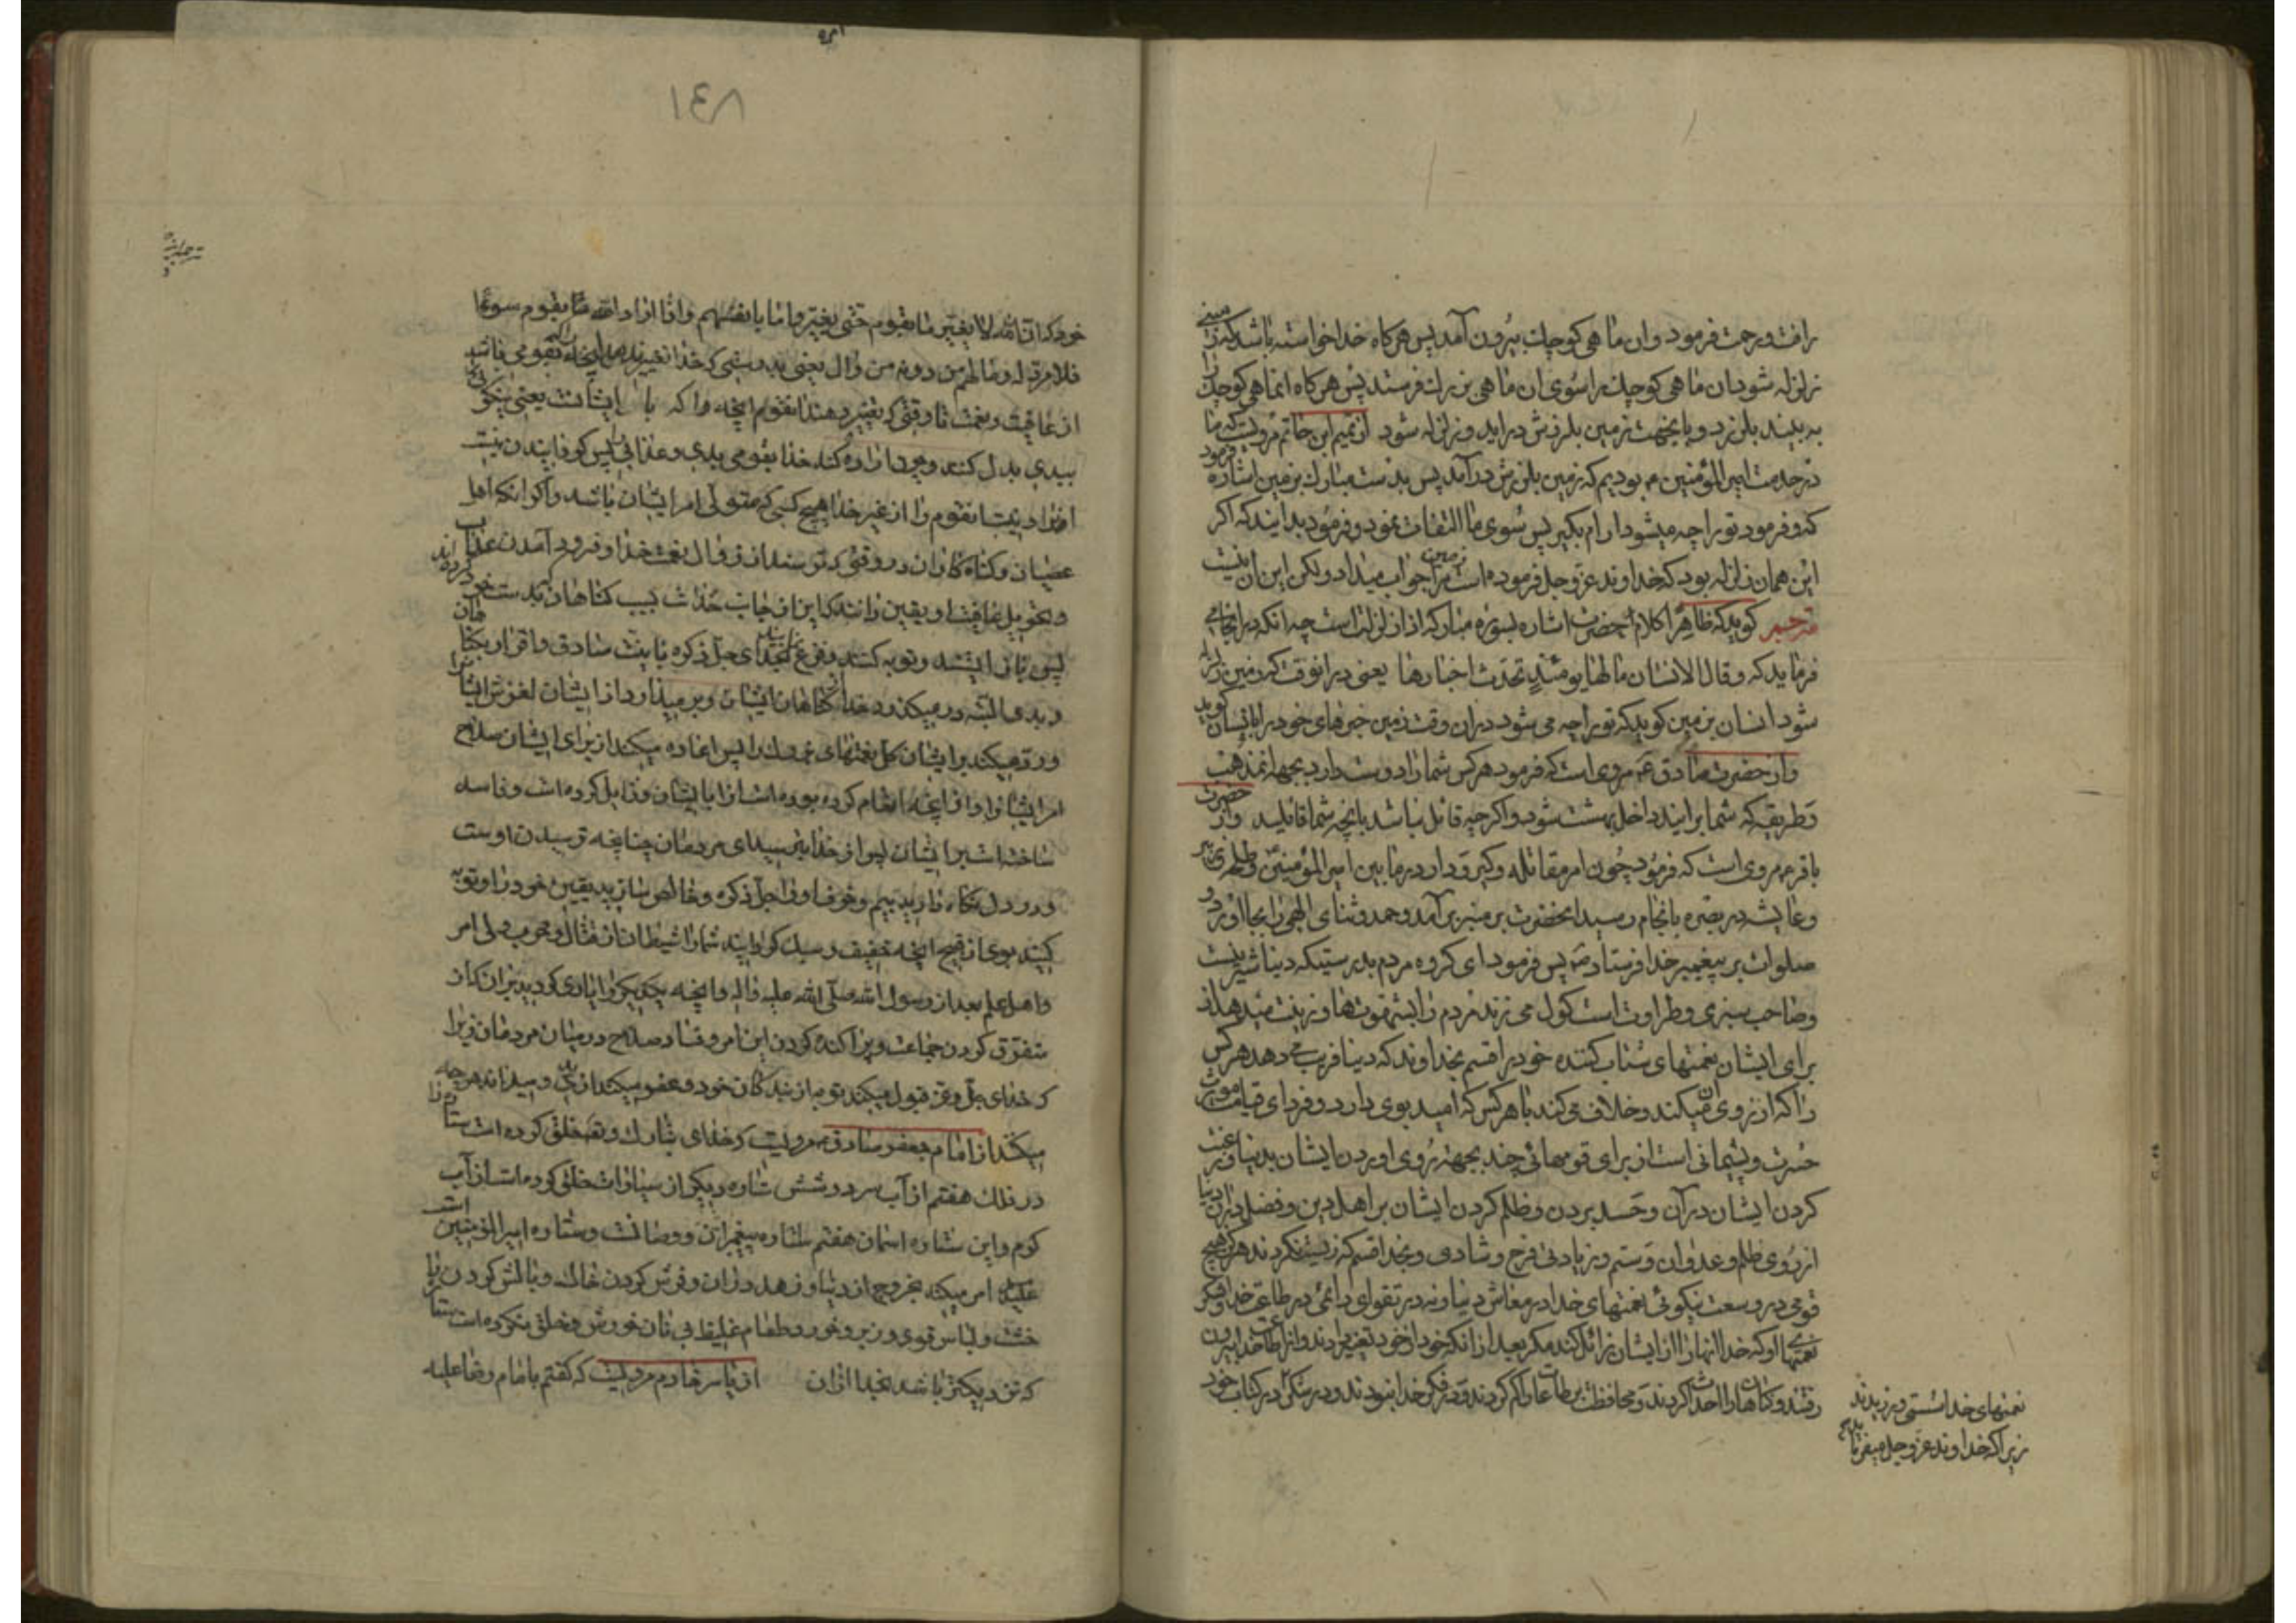 رافت و رحمت فرمود و ان ماهی کوچک بیرون آمد پس هرکاه خدا خواسته باشد که زمینی
زلزله شود ان ماهی کوچک را سوی ان ماهی بزرک فرستد پس هرکاه انماهی کوچک را
به بیند بلرزد و باینجهت زمین بلرزش دراید و زلزله شود از تمیم ابن حاتم مرویست که ما
در خدمت امیر المؤمنین ع بودیم که زمین بلرزش درآمد پس بدست مبارک بزمین اشاره فرمود
که و فرمود تو را چه میشود آرام بکیر پس سوی ما التفات نمود و فرمود بدانید که اکر
این همان زلزله بود که خداوند عز و جل فرموده است زمین مرا جواب میداد ولکن این آن نیست
مترجم کوید که ظاهرا کلام آنحضرت اشاره بسوره مبارکه اذا زلزلت است چه انکه در انجا می
فرماید که و قال الانسان مالها یومئذ تحدث اخبارها یعنی در انوقت که زمین زلزله
شود انسان بزمین کوید که تو را چه می شود در ان وقت زمین خبرهای خود را بانسان کوید
و از حضرت صادق ع مروی است که فرمود هرکس شما را دوست دارد بجهة انمذهب
و طریقه که شما برانید داخل بهشت شود و اکرچه قائل نباشد بانچه شما قائلید و از حضرت
باقر ع مروی است که فرمود چون امر مقاتله و کیر و دار در ما بین امیر المؤمنین و طلحه و زبیر
و عایشه در بصره بانجام رسید انحضرت بر منبر برآمد و حمد و ثنای الهی را بجا اورد و
صلوات بر پیغمبر خدا فرستاد ص پس فرمود ای کروه مردم بدرستیکه دنیا شیرینست
و صاحب سبزی و طراوت است کول می زند مردم را بشهوتها و زینت میدهد از
برای ایشان نعمتهای شتاب کننده خود را قسم بخداوند که دنیا فریب می دهد هرکس
را که ارزوی ان میکند و خلاف می کند با هرکس که امید بوی دارد و فردای قیامت مورث
حسرت و پشیمانی است از برای قومهائی چند بجهة روی اوردن ایشان بدنیا و رغبت
کردن ایشان در آن و حسد بردن و ظلم کردن ایشان بر اهل دین و فضل در ان دنیا
از روی ظلم و عدوان و ستم و زیادتی فرح و شادی و بخدا قسم که زیست نکردند هرکز هیچ
قومی در وسعت نیکوئی نعمتهای خدا در معاش دنیا و نه در تقوای دائمی در طاعت خدا و شکر
نعمتهای او که خدا انها را از ایشان زائل کند مکر بعد از انکه خود از خود تغییر دادند و از طاعت خدا بیرون
رفتند و کناهان را احداث کردند و محافظت بر طاعات را کم کردند و در فکر خدا نبودند و در شکر در کتاب خود
نعمتهای خدا سستی ورزیدند
زیرا که خداوند عز و جل میفرماید
١٤٨
خود که ان الله لا یغیر ما بقوم حتی یغیروا ما بانفسهم و اذا اراد الله بقوم سوءا
فلا مرد له و ما لهم من دونه من وال یعنی بدرستی که خدا تغییر نمیدهد انچه بقومی باشد
از عافیت و نعمت تا وقتی که تغییر دهند انقوم انچه را که با ایشانست یعنی نیکوئی را
ببدی بدل کنند و چون اراده کند خدا بقومی بدی و عذابی پس کردانیدن نیست
انرا و نیست انقوم را از غیر خدا هیچ کسی که متولی امر ایشان باشد و اکر انکه اهل
عصیان و کناه کاران در وقتی که ترسند از زوال نعمت خدا و فرود آمدن عذاب
و تحویل عافیت او یقین دانند که این از جانب خداست بسبب کناهان که بدست خود کرده اند
پس باز ایستند و توبه کنند و فزع نمایند بخدای جل ذکره با نیت صادق و اقرار بکناهان
و بدی البته درمیکذرد خدا از کناهان ایشان و برمیدارد از ایشان لغزش ایشانرا
و رد میکند بر ایشان کل نعمتهای خود را پس اعاده میکند از برای ایشان صلاح
امر ایشانرا و از انچه انعام کرده بوده است انرا بایشان و زایل کرده است و فاسد
ساخته است بر ایشان پس از خدا بترسید ای مردمان چنانچه ترسیدن اوست
و در دل نکاه دارید بیم و خوف او را جل ذکره و خالص سازید یقین خود را و توبه
کنید بوی از قبیح انچه خفیف و سبک کردانید شما را شیطان از قتال و حرب ولی امر
و اهل علم بعد از رسول الله صلی الله علیه و اله و انچه یکدیکر را یاری کردید بر ان از
متفرق کردن جماعت و پراکنده کردن این امر و فساد صلاح در میان مردمان زیرا
که خدای جل و عز قبول میکند توبه از بندکان خود و عفو میکند از بدی و میداند هر چه
میکنند از امام جعفر صادق ع مرویست که خدای تبارک و تعالی خلق کرده است ستاره را
در فلک هفتم از آب سرد و شش ستاره دیکر از سیارات خلق کرده است از آب
کرم و این ستاره اسمان هفتم ستاره پیغمبران و وصیانست و ستاره امیر المؤمنین است
علیه امر میکند بخروج از دنیا و زهد در ان و فرش کردن خاک و بالش کردن
خشت و لباس و خورد طعام غلیظ بی نان خورش و خلق نکرده است
که نزدیکتر باشد بخدا از ان از یاسر خادم مرویست که کفتم بامام رضا علیه